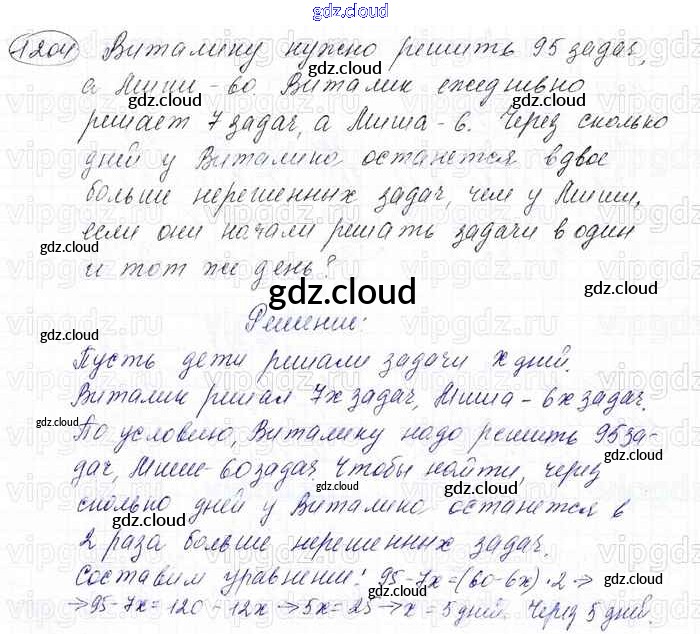 gdz.cloud
1204 Виталику нужно решить 95 задач,
а Миши - 60. Виталик ежедневно
gdz.cloud gdz.cloud
решает 7 задач, а Миша - 6. Через сколько
дней у Виталика останется вдвое
gdz.cloud gdz.cloud
больше нерешенных задач, чем у Миши,
если они начали решать задачи в один
gdz.cloud
и тот же день?
gdz.cloud gdz.cloud
Решение:
Пусть дети решали задачи x дней.
gdz.cloud
Виталик решал 7x задач, Миша - 6x задач.
gdz.cloud
По условию, Виталику надо решить 95 за-
дач, Миши - 60 задач. Чтобы найти, через
gdz.cloud gdz.cloud
сколько дней у Виталика останется в
gdz.cloud gdz.cloud
2 раза больше нерешенных задач.
gdz.cloud
Составим уравнение: 95-7x=(60-6x)·2 →
gdz.cloud
→ 95-7x=120-12x → 5x=25 → x=5 дней. Через 5 дней.
gdz.cloud gdz.cloud